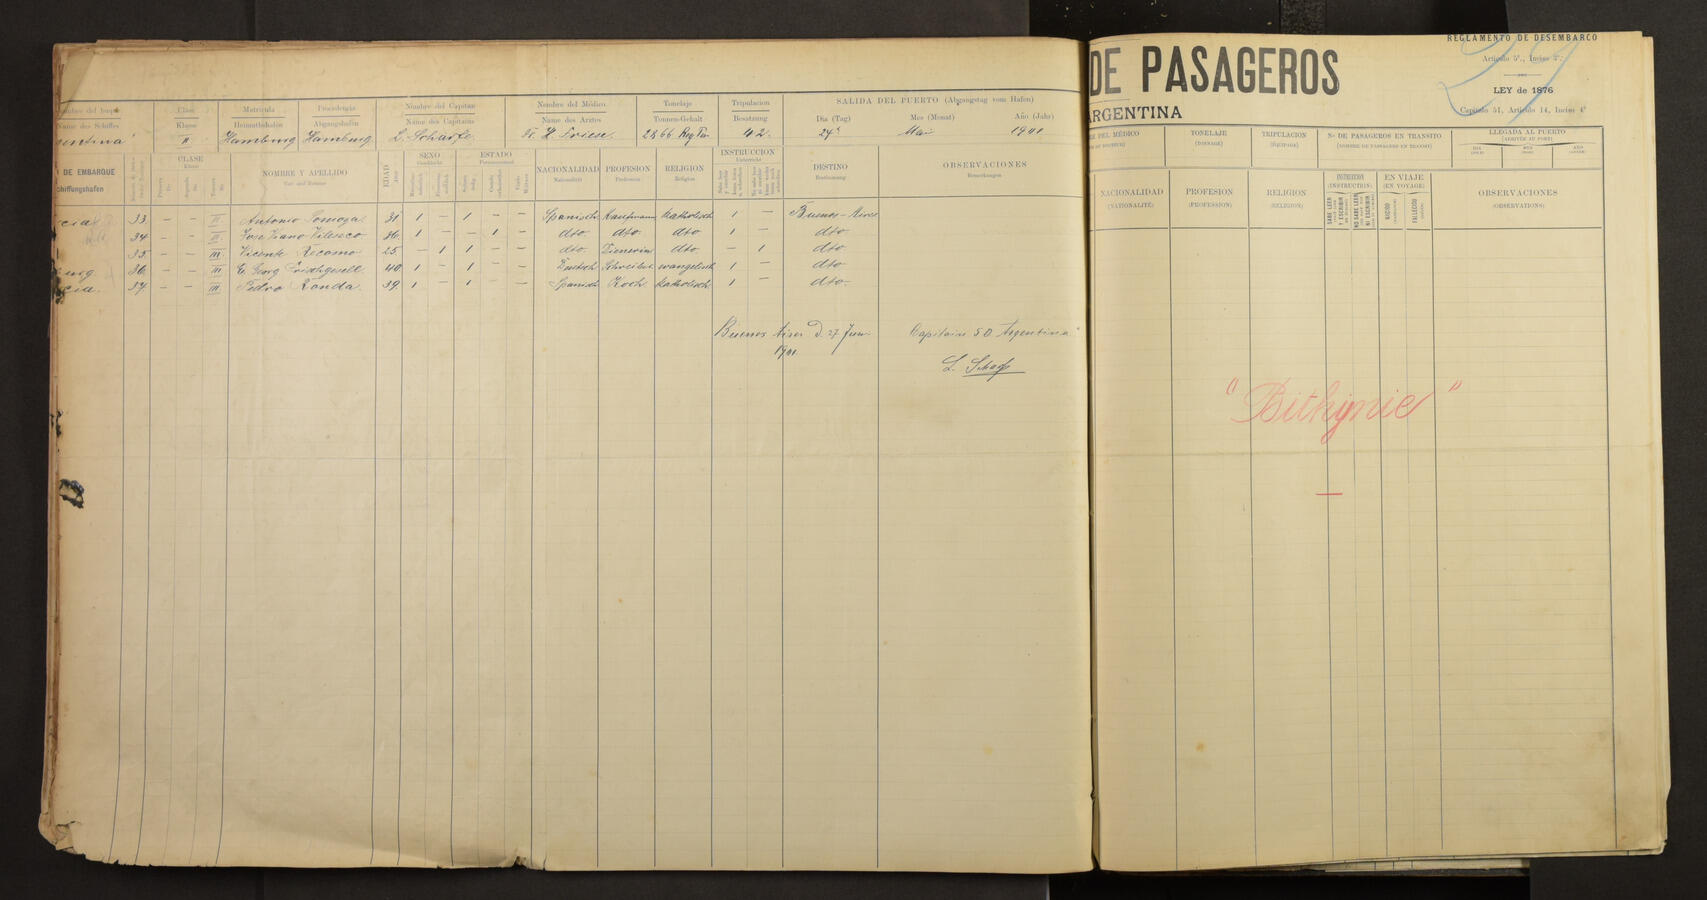 Nombre del buque Clase Matrícula Procedencia Nombre del Capitan Nombre del Médico Tonelaje Tripulacion SALIDA DEL PUERTO (Abgangstag vom Hafen)
Name des Schiffes Klasse Heimathshafen Abgangshafen Name des Capitains Name des Arztes Tonnen-Gehalt Besatzung Dia (Tag) Mes (Monat) Año (Jahr)
entina" II Hamburg Hamburg L. Scharfe Dr. H. Friese 2866 Reg Ton 42. 24t Mai 1901
DE EMBARQUE CLASE NOMBRE Y APELLIDO EDAD SEXO ESTADO NACIONALIDAD PROFESION RELIGION INSTRUCCION DESTINO OBSERVACIONES
schiffungshafen Klasse Vor- und Zuname Geschlecht Nationalität Profession Religion Unterricht Bestimmung Bemerkungen
cia 33 — — III Antonio 31 1 — 1 — — Spanisch Kaufmann katholisch 1 — Buenos-Aires
34 — — III Jose 36 1 — — 1 — dto dto dto 1 — dto
35 — — III Vicente 25 — 1 1 — — dto Dienerin dto — 1 dto
burg 36 — — III E. Georg Frischgesell 40 1 — 1 — — Deutsch Schreiber evangelisch 1 — dto
cia. 37 — — III Pedro Ronda 39 1 — 1 — — Spanisch Koch katholisch 1 — dto.
Buenos Aires d. 27 Juni Capitain SD Argentina"
1901
L. Scharfe
29
DE PASAGEROS
ARGENTINA
REGLAMENTO DE DESEMBARCO
Artículo 5º., Inciso 3º.
LEY de 1876
Capítulo 51, Artículo 14, Inciso 4º
DEL MÉDICO TONELAJE TRIPULACION No DE PASAGEROS EN TRANSITO LLEGADA AL PUERTO
(TONNAGE) (ÉQUIPAGE) (NOMBRE DE PASSAGERS EN TRANSIT) (ARRIVÉE AU PORT)
DIA MES AÑO
NACIONALIDAD PROFESION RELIGION INSTRUCCION EN VIAJE OBSERVACIONES
(NATIONALITÉ) (PROFESSION) (RELIGION) (INSTRUCTION) (EN VOYAGE) (OBSERVATIONS)
SABE LEER Y ESCRIBIR NO SABE LEER NI ESCRIBIR NACIDO FALLECIDO
"Bithynie"